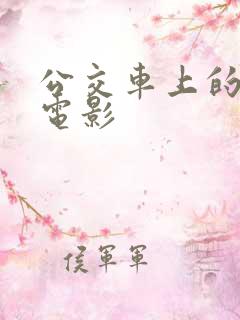 公交車上的
電影
侯軍軍